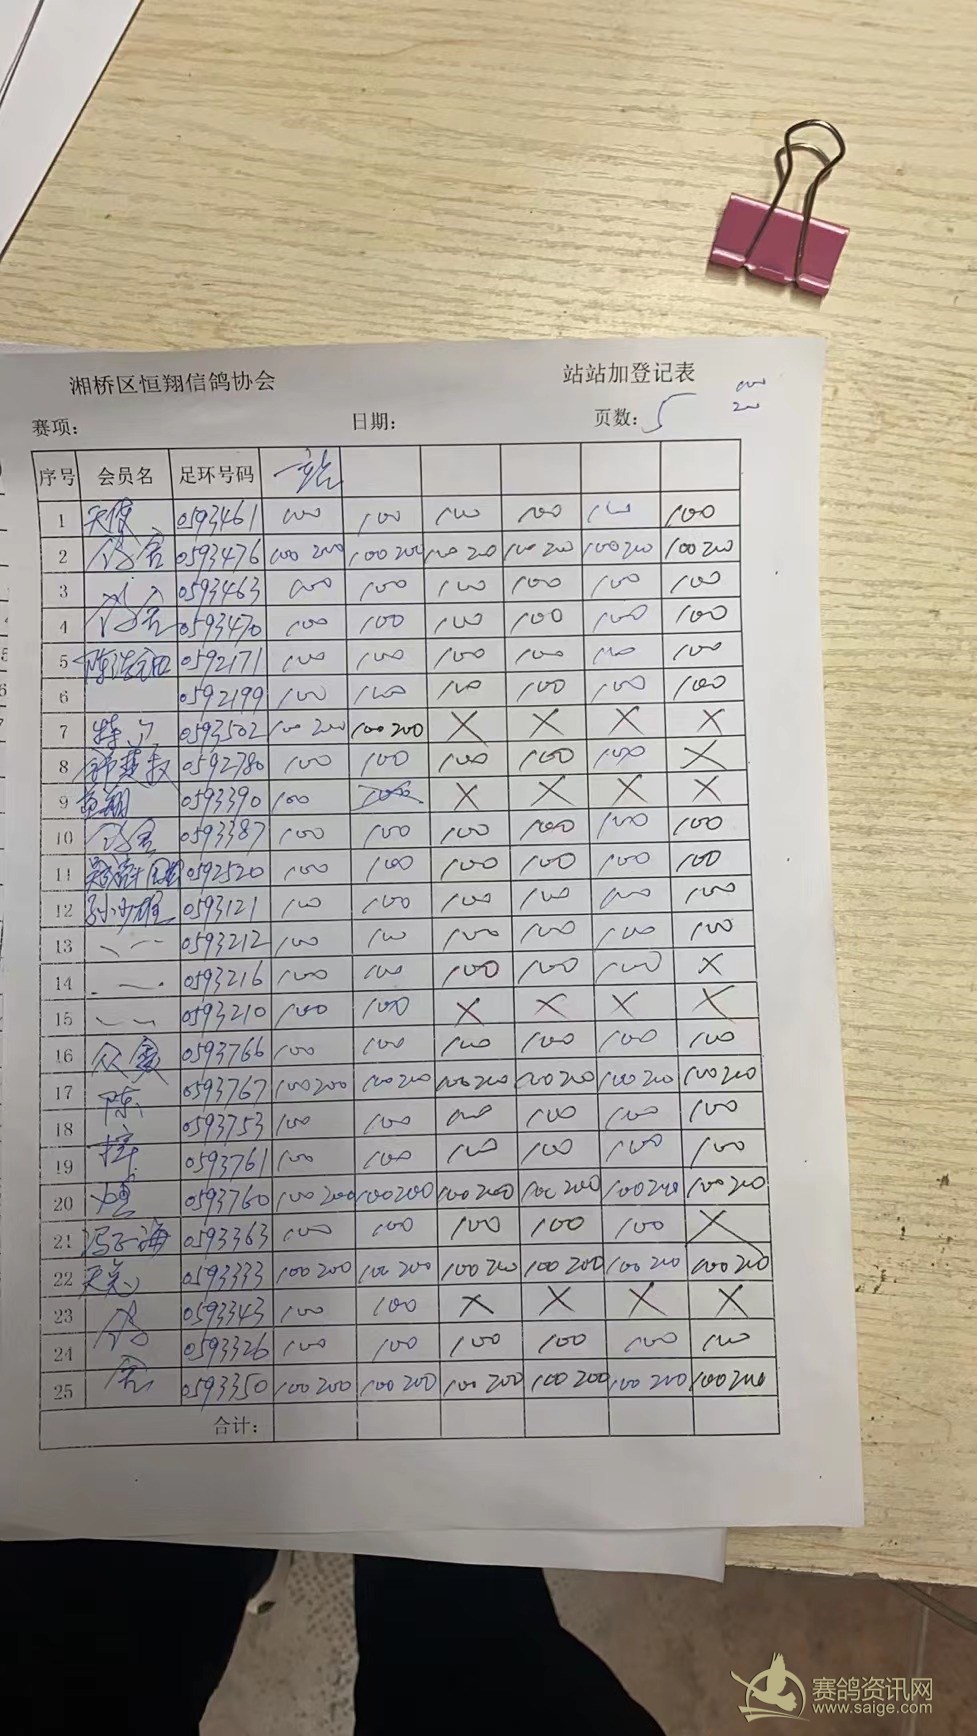 湘桥区恒翔信鸽协会 站站加登记表
100
200
赛项: 日期: 页数: 5
序号 会员名 足环号码 一站
1 天使 0593461 100 100 100 100 100 100
2 鸽舍 0593476 100 200 100 200 100 200 100 200 100 200 100 200
3 0593463 100 100 100 100 100 100
4 鸽舍 0593470 100 100 100 100 100 100
5 0592171 100 100 100 100 100 100
6 0592199 100 100 100 100 100 100
7 0593502 100 200 100 200 X X X X
8 0592780 100 100 100 100 100 X
9 0593390 100 X X X X
10 鸽舍 0593387 100 100 100 100 100 100
11 0592520 100 100 100 100 100 100
12 孙少雄 0593121 100 100 100 100 100 100
13 0593212 100 100 100 100 100 100
14 0593216 100 100 100 100 100 X
15 0593210 100 100 X X X X
16 众赛 0593766 100 100 100 100 100 100
17 陈 0593767 100 200 100 200 100 200 100 200 100 200 100 200
18 0593753 100 100 100 100 100 100
19 0593761 100 100 100 100 100 100
20 0593760 100 200 100 200 100 200 100 200 100 200 100 200
21 0593363 100 100 100 100 100 X
22 0593333 100 200 100 200 100 200 100 200 100 200 100 200
23 鸽 0593343 100 100 X X X X
24 0593326 100 100 100 100 100 100
25 舍 0593350 100 200 100 200 100 200 100 200 100 200 100 200
合计:
赛鸽资讯网
www.saige.com